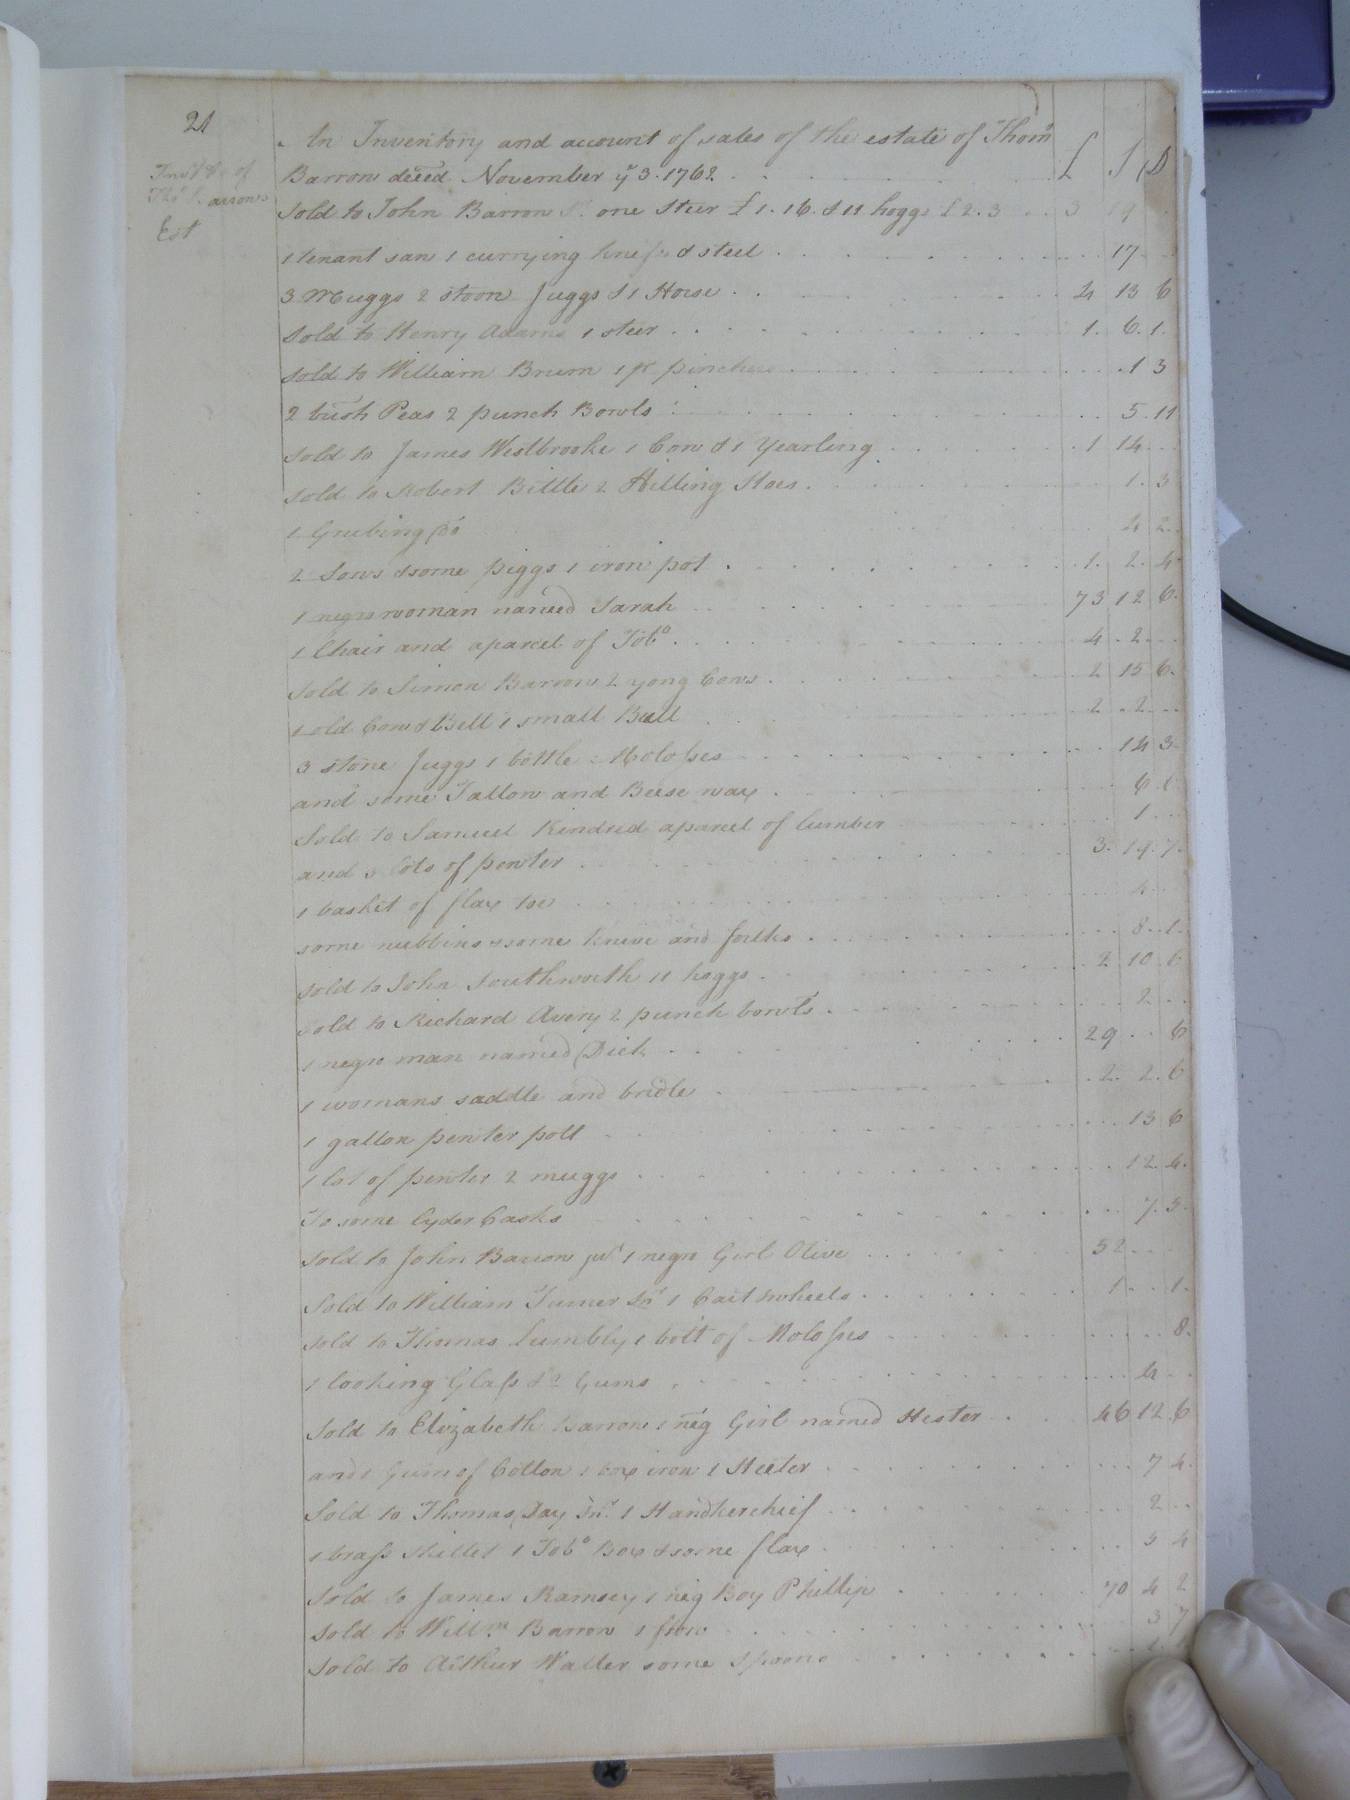 21
Inv.t &c of
Tho.s Barrow's
Est
An Inventory and account of sales of the estate of Thom.s
Barrow deced November ye 3. 1762 £ S D
Sold to John Barrow one Steer £1.16. & 11 hoggs £2.3 3 19
1 tenant saw 1 currying knife & steel 17
3 Muggs 2 stoon Juggs & 1 Horse 4 13 6
Sold to Henry Adams 1 steer 1. 6. 1.
Sold to William Brum 1 pr pinchers 1 3
2 bush Peas 2 punch Bowls 5. 11
Sold to James Westbrooke 1 Cow & 1 Yearling 1 14
Sold to Robert Bittle 2 Hilling Hoes 1. 3
1 Grubing Do 4 2
2 Sows & some piggs 1 iron pot 1. 2. 4
1 negro woman named Sarah 73 12 6.
1 Chair and a parcel of Tobo 4 . 2
Sold to Simon Barrow 2 yong Cows 2 15 6.
1 old Cow & Bell 1 small Bull 2 . 2
3 stone Juggs 1 bottle Molosses 14 3
and some Tallow and Beese wax 6
Sold to Samuel Kindred a parcel of lumber 1
and 3 lots of pewter 3. 19. 7.
1 basket of flax tow
some nubbins & some knive and forks 8. 1.
Sold to John Southworth 11 hoggs 2 10 6
Sold to Richard Avery 2 punch bowls 2
1 negro man named Dick 29 6
1 womans saddle and bridle 2. 2. 6
1 gallon pewter pott 13 6
1 lot of pewter 2 muggs 12. 4.
To some Cyder Casks 7. 3
Sold to John Barrow jur 1 negro Girl Olive 52
Sold to William Turner Snr 1 Cart wheels 1 1.
Sold to Thomas Lumbly 1 bott of Molosses 8.
1 looking Glass & 2 Gums 4
Sold to Elizabeth Barrow 1 neg Girl named Hester 46 12 6
and 1 Gum of Cotton 1 box iron 1 Heeter 7 4.
Sold to Thomas Day Snr. 1 Handkerchief 2
1 brass skillet 1 Tobo Box & some flax 3 4
Sold to James Ramsey 1 neg Boy Phillip 70 4 2
Sold to Willm Barrow 1 3 7
Sold to Arthur Waller some spoons